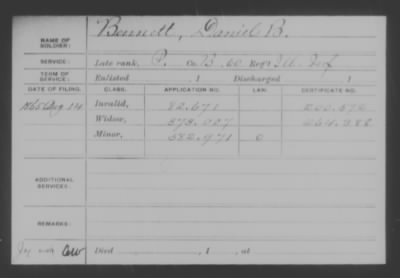 NAME OF SOLDIER: Bennett, Daniel B.
SERVICE: Late rank, P. Co. B. 60 Reg't Ill. Inf
TERM OF SERVICE: Enlisted , 1 Discharged , 1
DATE OF FILING. CLASS. APPLICATION NO. LAW. CERTIFICATE NO.
1865 Aug 14 Invalid, 82.671
Widow, 373.027 264.388
Minor, 582.971 0
ADDITIONAL SERVICES:
REMARKS:
Died , 1 , at